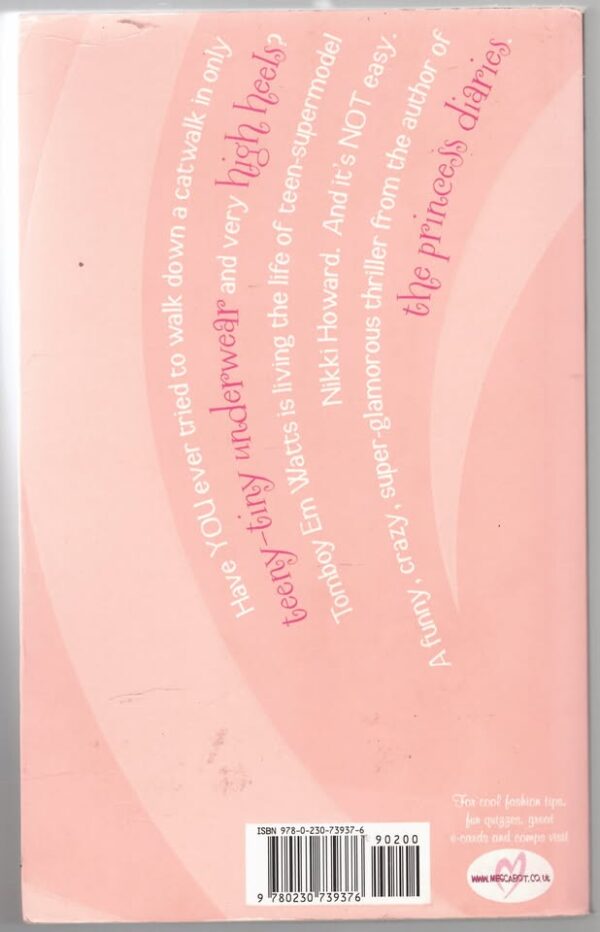 Have YOU ever tried to walk down a catwalk in only
teeny-tiny underwear and very high heels?
Tomboy Em Watts is living the life of teen-supermodel
Nikki Howard. And it's NOT easy.
A funny, crazy, super-glamorous thriller from the author of
the princess diaries.
For cool fashion tips,
fun quizzes, great
e-cards and comps visit
WWW.MEGCABOT.CO.UK
ISBN 978-0-230-73937-6
90200
9 780230 739376